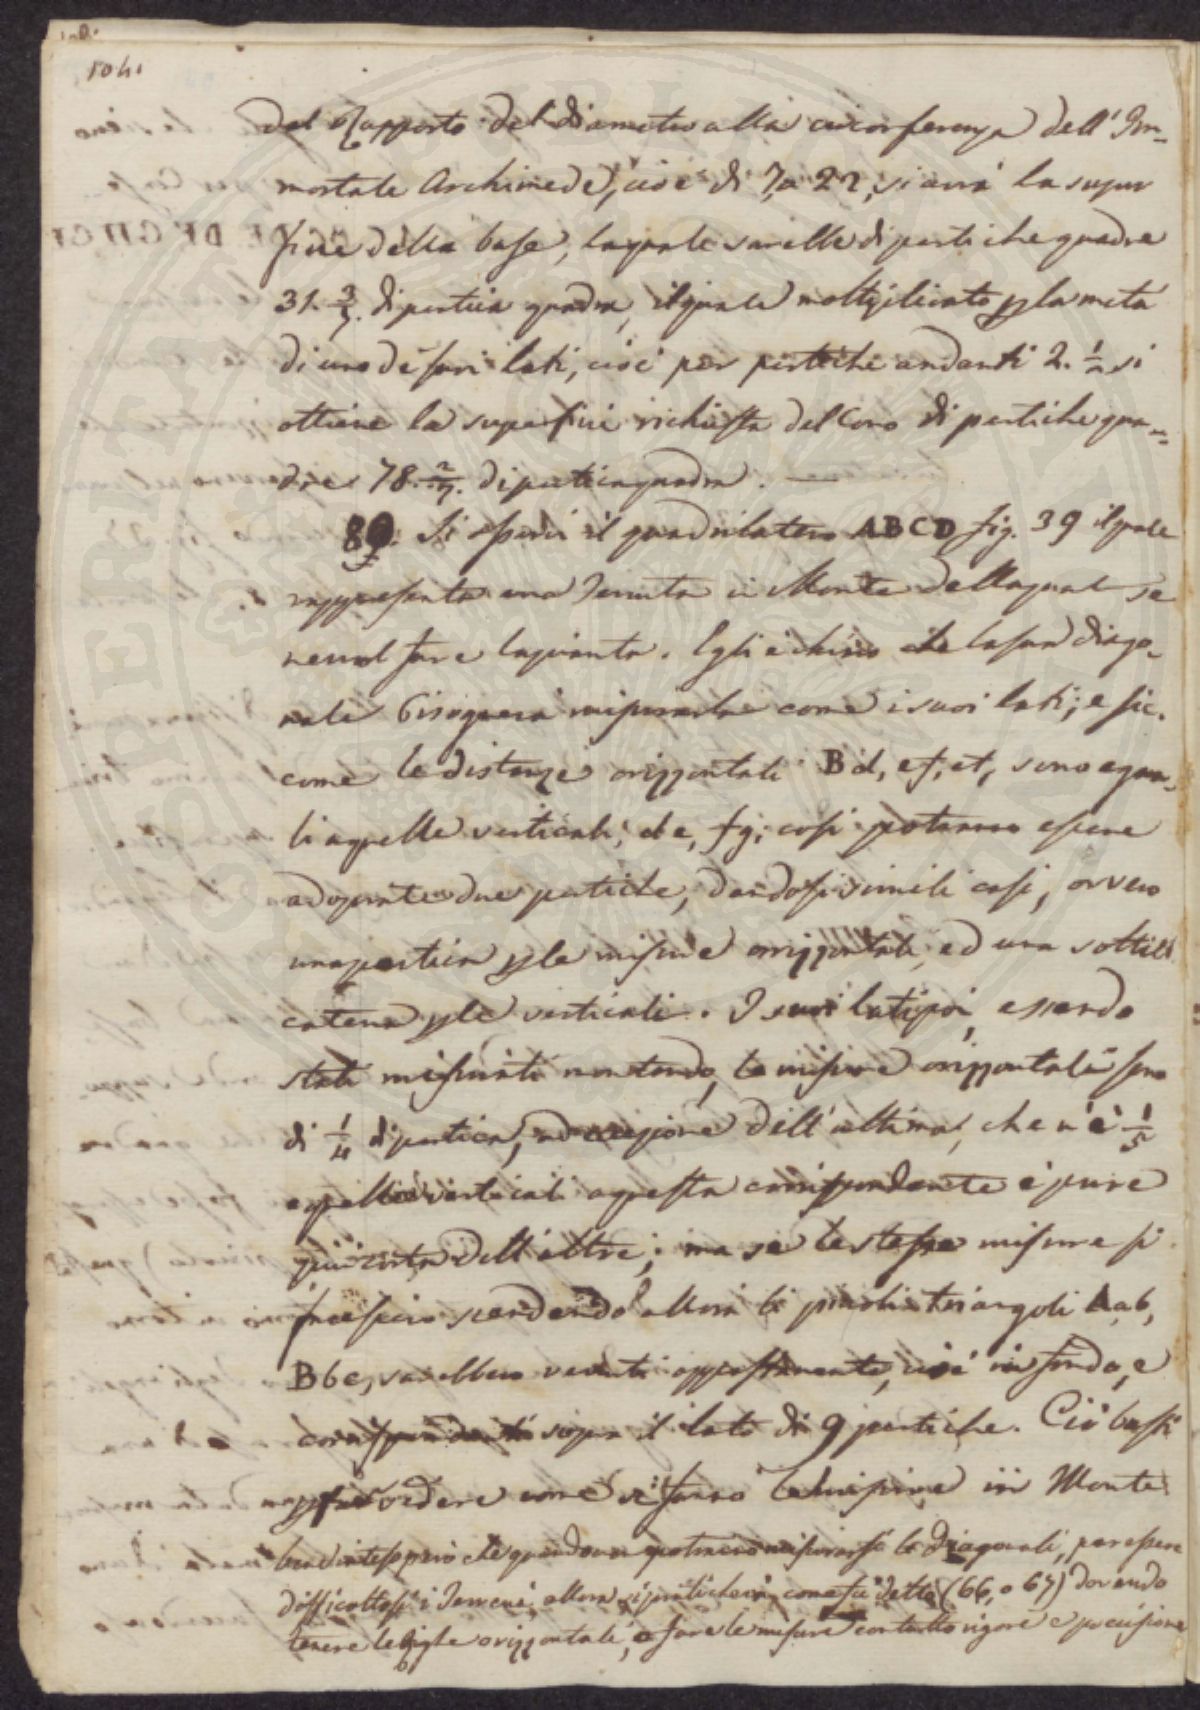 104.
del Rapporto del diametro alla circonferenza dell'Im-
mortale Archimede, cioè di 7, a 22, si avrà la super
ficie della base, la quale sarelle di pertiche quadre
31. 3/7. di pertica quadra, il quale moltiplicato per la metà
di uno de suoi lati, cioè per pertiche andanti 2. 1/2 si
ottiene la superficie richiesta del Cono di pertiche qua-
dre 78. 2/7. di pertica quadra.
89. Si osservi il quadrilatero ABCD fig. 39 il quale
rappresenta una Tenuta in Monte della quale se
ne vuol fare la pianta. Egli è chiaro che la sua diago-
nale bisognerà misurarla come i suoi lati; e sic-
come le distanze orizzontali Bd, ef, et, sono egua-
li a quelle verticali, de, fg; così potranno essere
adoprate due pertiche, dandosi simili casi, ovvero
una pertica per le misure orizzontali, ed una sottile
catena per le verticali. I suoi lati poi, essendo
stati misurati montando, le misure orizzontali sono
di 1/4 di pertica, ad eccezione dell'ultima, che n'è 1/5
e quelle verticali a questa corrispondente è pure
più corta dell'altre; ma se le stesse misure si
facessero scendendo allora li piccoli triangoli Aab,
Bbc, sarebbero veduti oppostamente, cioè in fondo, e
corrispondenti sopra il lato di 9 pertiche. Ciò basti
per far vedere come si fanno le misure in Monte
ben inteso però che quando non potranno misurarsi le diagonali, per essere
difficoltosi i Terreni, allora si praticherà come fù detto (66, e 67) dovendo
tenere le Righe orizzontali, e fare le misure con tutto rigore e precisione